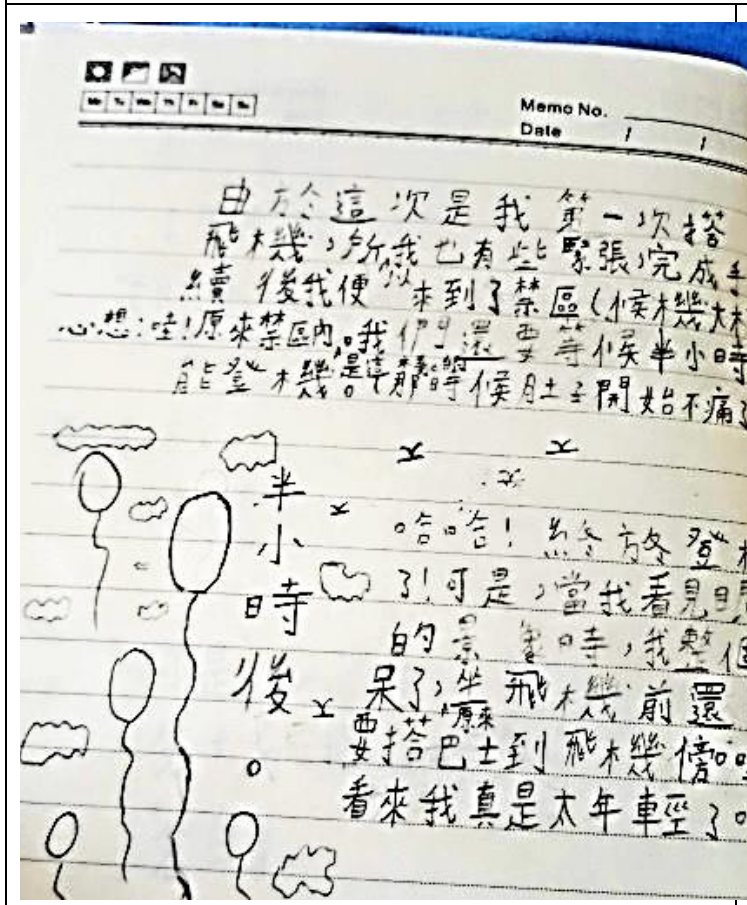 Mo Tu We Th Fr Sa Su
Memo No.
Date / /
由於這次是我第一次搭
飛機，所以我也有些緊張，完成手
續後我便來到了禁區(候機大
心想：哇！原來禁區內。我們還要等候半小時
能登機。是這那時候肚子開始不痛了
半小時後。
哈哈！終於登
了！可是，當我看見眼
的景象時，我整個
呆了，坐飛機前還
原來
要搭巴士到飛機傍
看來我真是太年輕了。